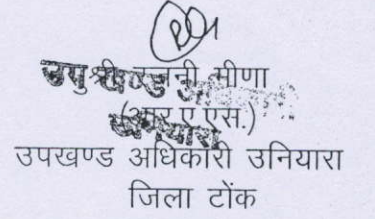 सुश्री रजनी मीणा
(आर.ए.एस.)
उपखण्ड अधिकारी उनियारा
जिला टोंक